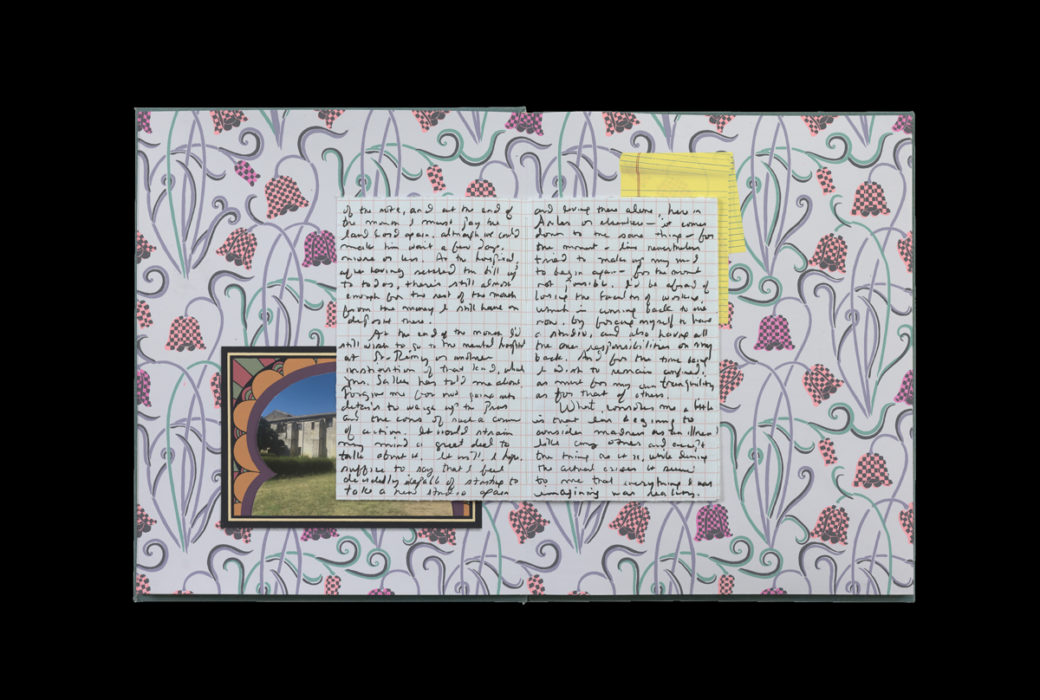 of the note, and at the end of
the month I must pay the
land lord again, although we could
make him wait a few days.
more or less. At the hospital,
after having settled the bill up
to today, there's still almost
enough for the rest of the month
from the money I still have on
deposit here.
At the end of the month I'd
still wish to go to the mental hospital
at St.-Rémy or another
institution of that kind, which
Mr. Salles has told me about
forgive me for not going into
details to weigh up the pros
and the cons of such a course
of action. It would strain
my mind a great deal to
talk about it. It will, I hope,
suffice to say that I feel
decidedly incapable of starting to
take a new studio again
and living there alone, here in
Arles or elsewhere – it comes
down to the same thing – for
the moment – I've nevertheless
tried to make up my mind
to begin again – for the moment
not possible. I'd be afraid of
losing the faculty of working,
which is coming back to me
now, by forcing myself to have
a studio, and also having all
the other responsibilities on my
back. And for the time being
I wish to remain confined,
as much for my own tranquility
as for that of others.
What consoles me a little
is that I'm beginning to
consider madness as an illness
like any other and accept
the thing as it is, while during
the actual crises it seemed
to me that everything I was
imagining was reality.